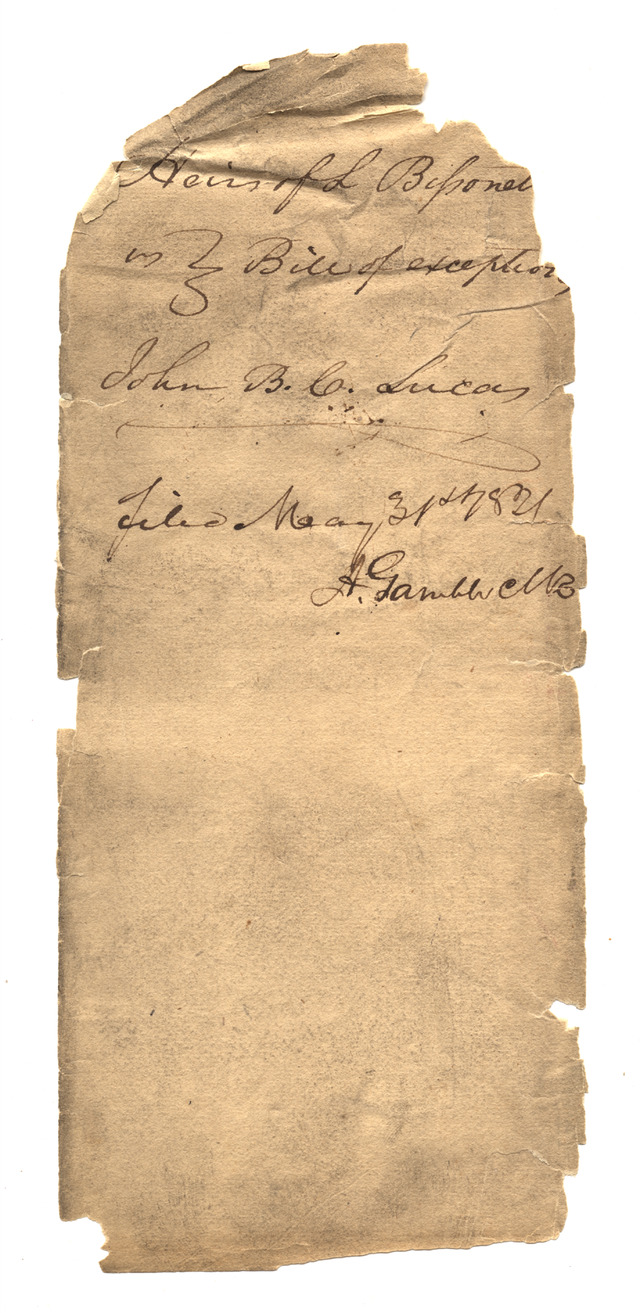 Heirs of L Bissonet
vs } Bill of exceptions
John B. C. Lucas
filed May 31st 1821
A. Gamble Clk